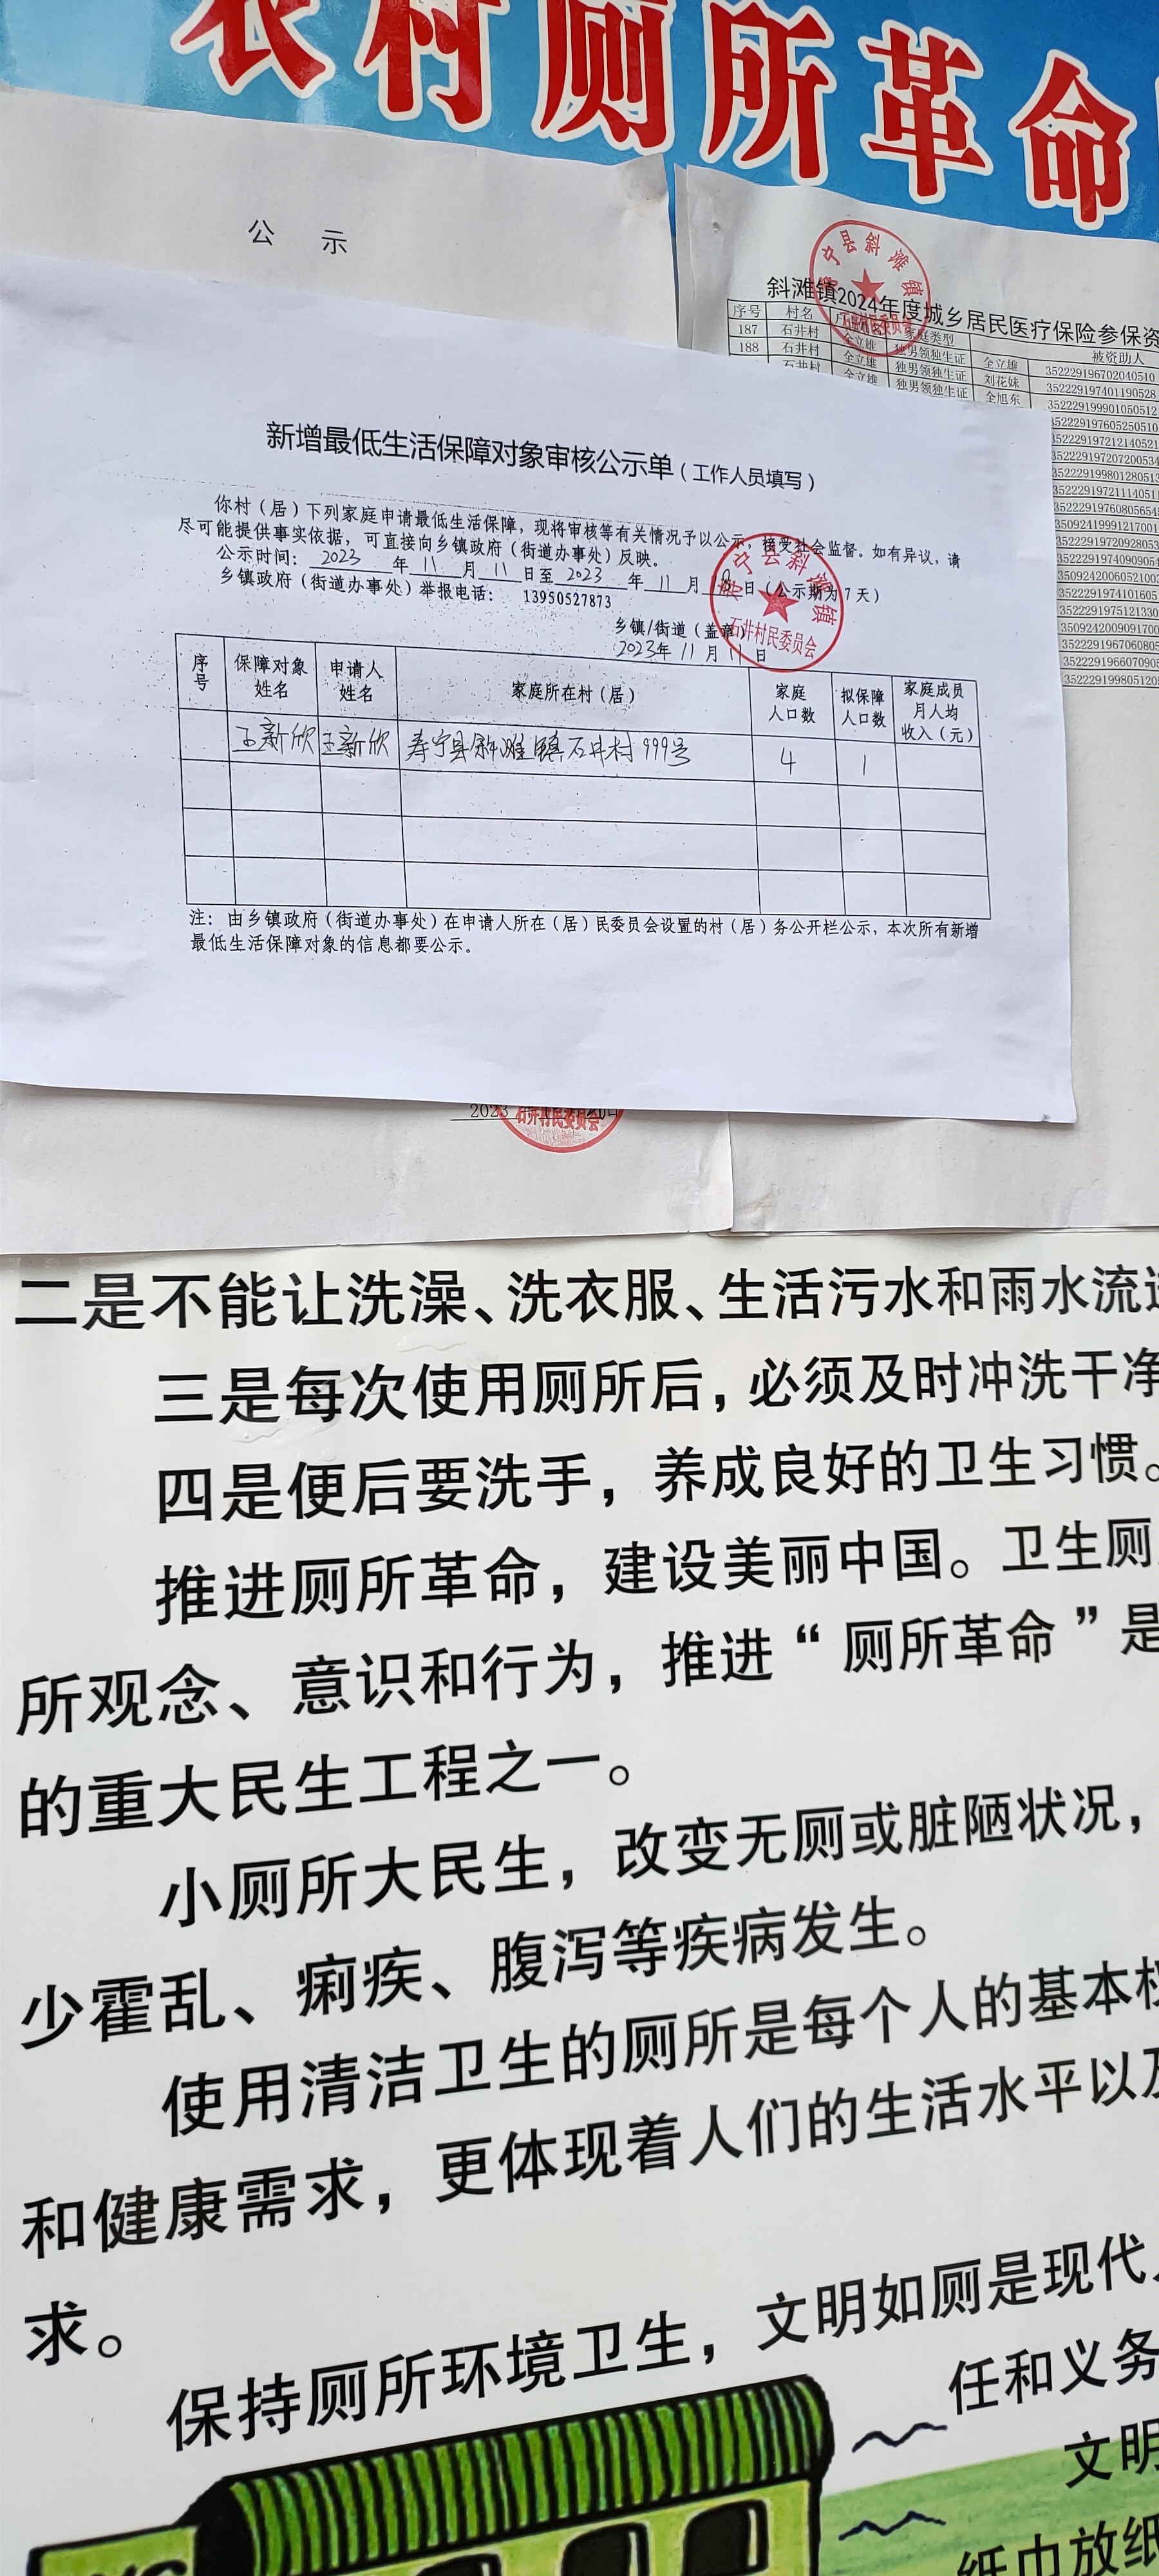 农村厕所革命
公 示
寿宁县斜滩镇
石井村民委员会
斜滩镇2024年度城乡居民医疗保险参保资
序号 村名 家庭类型 被资助人
187 石井村 全立雄 独男领独生证 全立雄 352229196702040510
188 石井村 全立雄 独男领独生证 刘花妹 352229197401190528
石井村 全立雄 独男领独生证 全旭东 352229199901050512
352229197605250510
352229197212140521
352229197207200534
352229199801280513
352229197211140511
35222919760805654
35092419991217001
35222919720928053
35222919740909054
35092420060521002
3522291974101605
3522291975121330
3509242009091700
3522291967060805
352229196607090
3522291998051205
新增最低生活保障对象审核公示单（工作人员填写）
你村（居）下列家庭申请最低生活保障，现将审核等有关情况予以公示，接受社会监督。如有异议，请
尽可能提供事实依据，可直接向乡镇政府（街道办事处）反映。
公示时间： 2023 年 11 月 11 日至 2023 年 11 月 18 日（公示期为7天）
乡镇政府（街道办事处）举报电话： 13950527873
乡镇/街道（盖章）
2023年 11 月 11 日
寿宁县斜滩镇
石井村民委员会
序号 保障对象姓名 申请人姓名 家庭所在村（居） 家庭人口数 拟保障人口数 家庭成员月人均收入（元）
王新欣 王新欣 寿宁县斜滩镇石井村999号 4 1
注：由乡镇政府（街道办事处）在申请人所在（居）民委员会设置的村（居）务公开栏公示，本次所有新增
最低生活保障对象的信息都要公示。
2023
石井村民委员会
二是不能让洗澡、洗衣服、生活污水和雨水流进
三是每次使用厕所后，必须及时冲洗干净
四是便后要洗手，养成良好的卫生习惯。
推进厕所革命，建设美丽中国。卫生厕
所观念、意识和行为，推进“厕所革命”是
的重大民生工程之一。
小厕所大民生，改变无厕或脏陋状况，
少霍乱、痢疾、腹泻等疾病发生。
使用清洁卫生的厕所是每个人的基本权
和健康需求，更体现着人们的生活水平以及
求。
保持厕所环境卫生，文明如厕是现代人
任和义务
文明
纸巾放纸